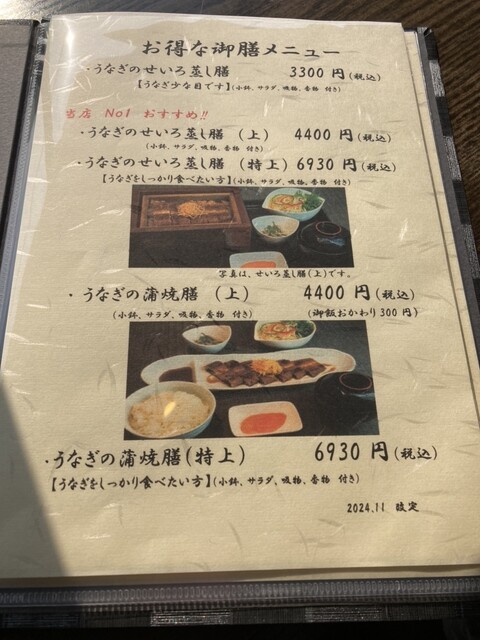 お得な御膳メニュー
・うなぎのせいろ蒸し膳 3300円(税込)
【うなぎ少な目です】(小鉢、サラダ、吸物、香物 付き)
当店 No1 おすすめ!!
・うなぎのせいろ蒸し膳 (上) 4400円(税込)
(小鉢、サラダ、吸物、香物 付き)
・うなぎのせいろ蒸し膳 (特上) 6930円(税込)
【うなぎをしっかり食べたい方】(小鉢、サラダ、吸物、香物 付き)
写真は、せいろ蒸し膳(上)です。
・うなぎの蒲焼膳 (上) 4400円(税込)
(小鉢、サラダ、吸物、香物 付き) (御飯おかわり300円)
・うなぎの蒲焼膳(特上) 6930円(税込)
【うなぎをしっかり食べたい方】(小鉢、サラダ、吸物、香物 付き)
2024.11 改定